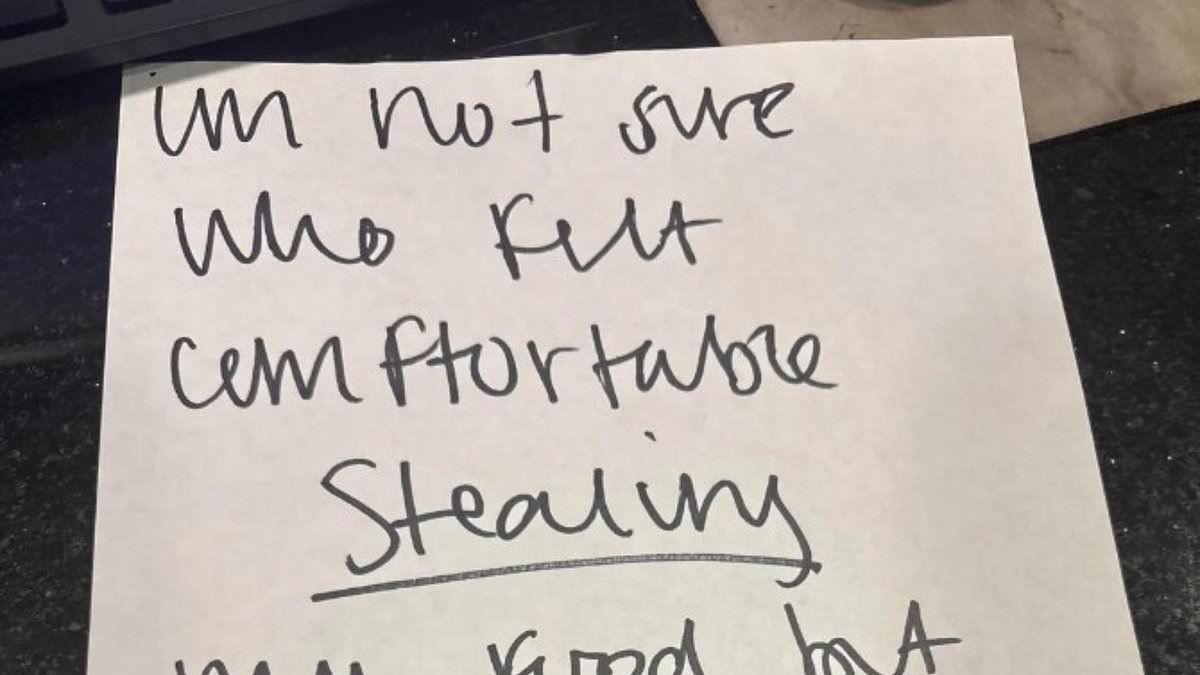 im not sure
who felt
comftortable
Stealing
my food but